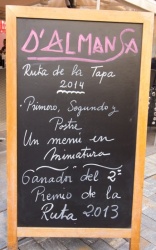 D'ALMANSA
Ruta de la Tapa
2014
Primero, Segundo y
Postre
Un menú en
miniatura
Ganador del 2º
Premio de la
Ruta 2013